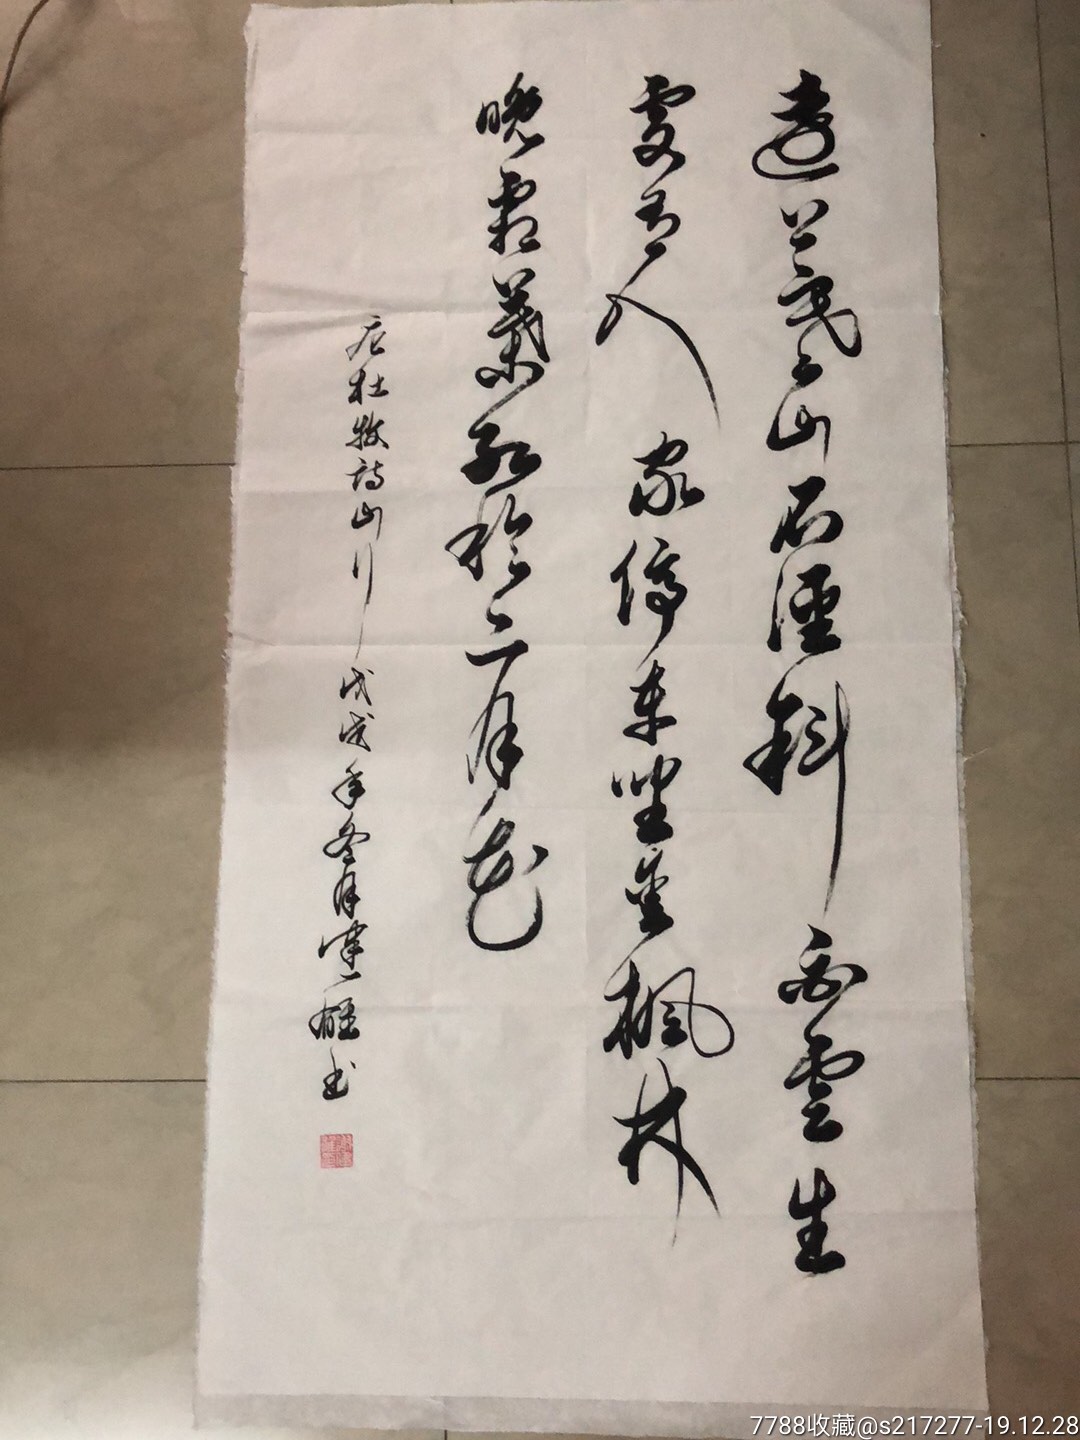 遠上寒山石徑斜白雲生
處有人家停車坐愛楓林
晚霜葉紅於二月花
唐杜牧詩山行 戊戌年冬月雄书
7788收藏@s217277-19.12.28